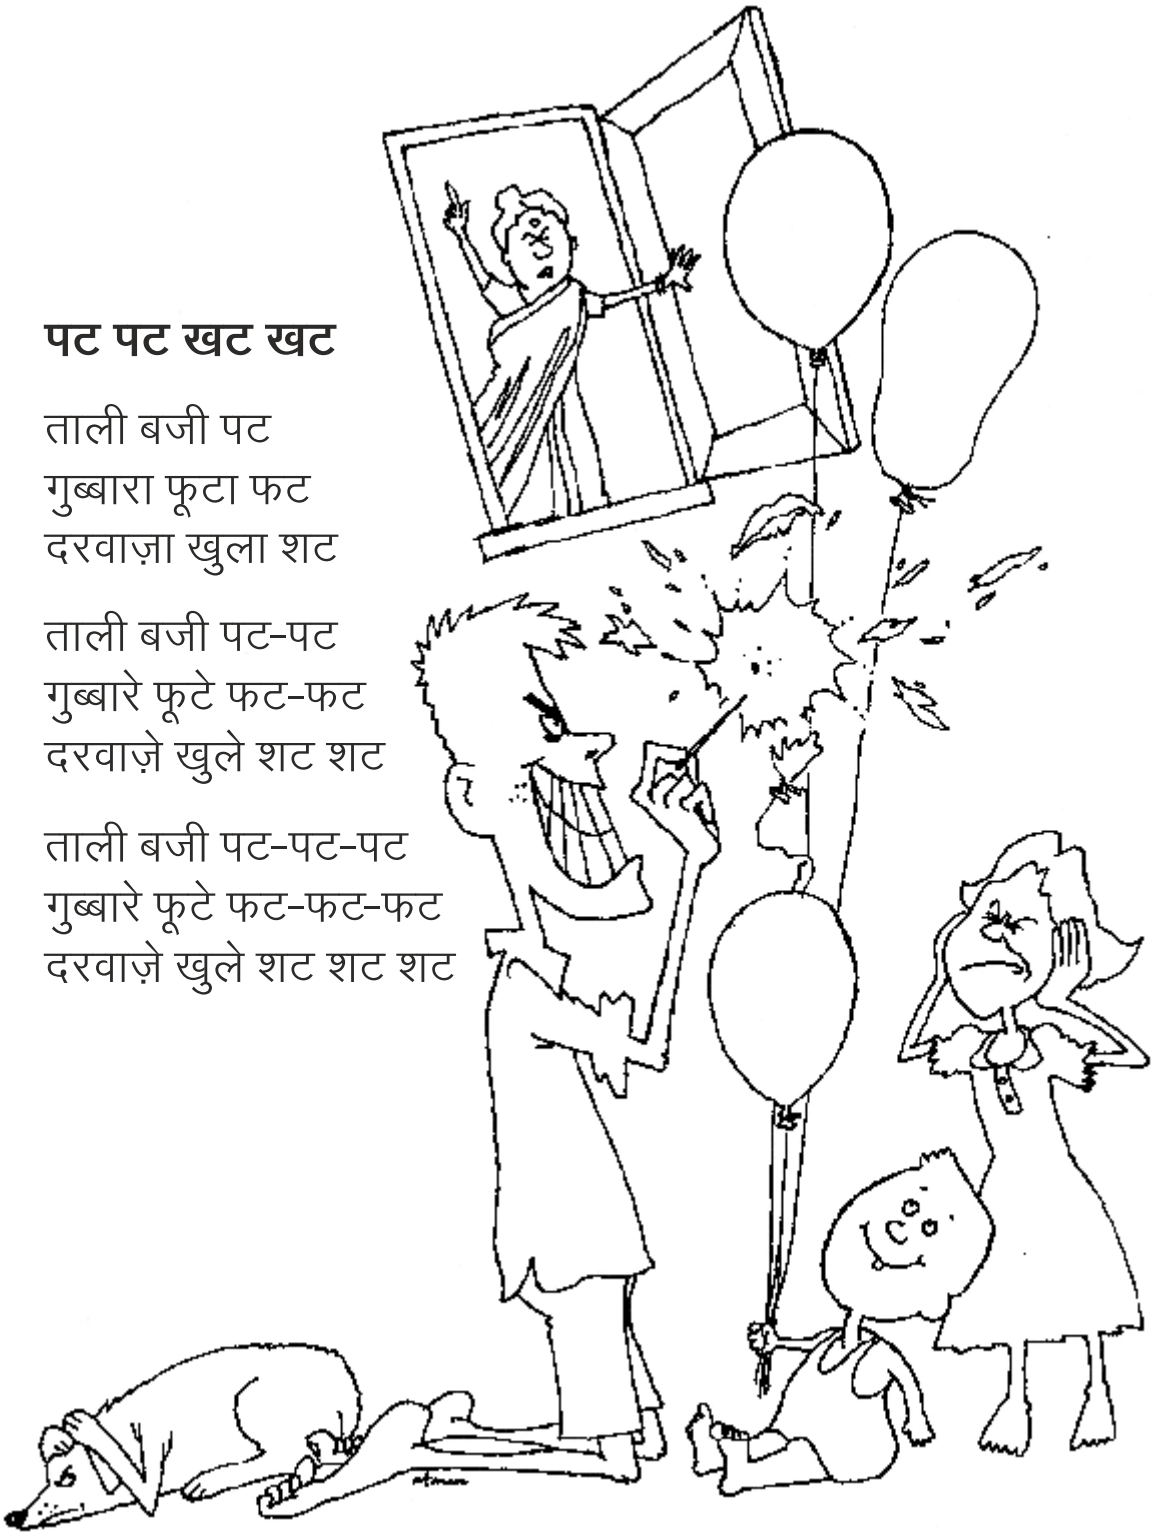 पट पट खट खट
ताली बजी पट
गुब्बारा फूटा फट
दरवाज़ा खुला शट
ताली बजी पट-पट
गुब्बारे फूटे फट-फट
दरवाज़े खुले शट शट
ताली बजी पट-पट-पट
गुब्बारे फूटे फट-फट-फट
दरवाज़े खुले शट शट शट